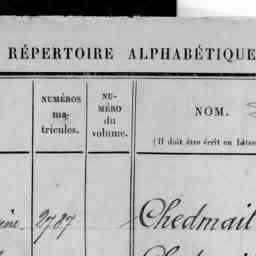 RÉPERTOIRE ALPHABÉTIQUE
NUMÉROS
ma-
tricules.
NU-
MÉRO
du
volume.
NOM.
(Il doit être écrit en bâtar
2787
Chedmail